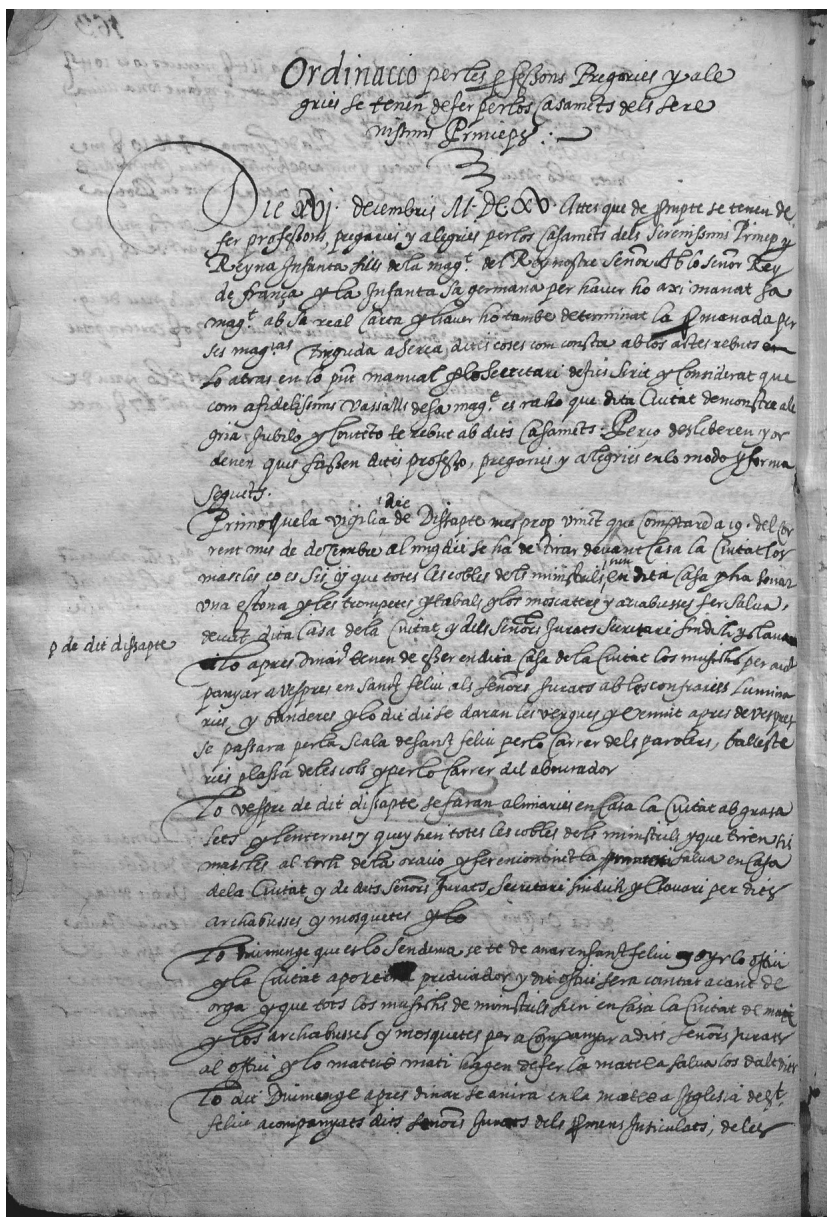 Ordinacio per les professons Pregaries y ale
gries se tenen de fer per los Casaments dels Sere
nissims Princeps
Die xvj decembris M.DC.XV. Attes que de prompte se tenen de
fer professons, pregaries y alegries per los Casaments dels Serenissims Princep y
Reyna Infanta fills de la mag.t del Rey nostre Señor Ab lo señor Rey
de frança y la Infanta sa germana per haver ho axi manat sa
mag.t ab sa real Carta y haver ho tambe determinat la
ses mag.tas tinguda acerca dites coses com consta ab los actes rebuts en
lo atras en lo pnt manual y lo Secretari dejus scrit y Considerat que
com a fidelissims vassalls de sa mag.t es raho que dita Ciutat demostre ale
gria Jubilo y Contento te rebut ab dits Casaments Perço desliberen y or
denen ques fassen dites professo, pregaries y alegries en lo modo y forma
seguets.
Primo que la vigilia, die de Dissapte mes prop vinent que Comptarem a 19. del cor
rent mes de dezembre al mig die se ha de tirar devant Casa la Ciutat los
mascles ço es sis y que totes les cobles dels ministrils en dita Casa y ha sonar
una estona y les trompetes y tabals y los moscaters y arcabusses fer Salva,
devant dita Casa de la Ciutat y dels Señors Jurats Secretari Sindich y Clavari
p de dit dissapte
Lo apres dinar tenen de esser en dita Casa de la Ciutat los musichs per acom
panyar a vespres en Sanct feliu als señors Jurats ab les confraries Lumina
ries y banderes y lo dit die se daran les verques y apres de vespres
se passara per la Scala de sanct feliu per lo Carrer dels parolers, balleste
ries plassa de les cols y per lo Carrer del abeurador
Lo vespre de dit dissapte se faran alimaries en Casa la Ciutat ab grasa
lets y lenternes y quey sien totes les cobles dels ministrils y que tiren sis
mascles al toch de la oracio y fer la salva en Casa
de la Ciutat y de dits Señors Jurats Secretari Sindich y Clavari per dits
archabusses y mosquetes y lo
Lo Diumenge que es lo Sendema se te de anar en sanct feliu oyr lo offici
y la Ciutat aporte predicador y dit offici sera cantar a cant de
orga y que tots los musichs de ministrils sien en Casa la Ciutat de mati
y los archabusses y mosquetes per acompanyar a dits señors Jurats
al offici y lo mateix mati hagen de fer la matexa salva los dalt dits
Lo dit Diumenge apres dinar se anira en la matexa Iglesia de St.
feliu acompanyats dits señors Jurats dels promens Inticulats, de les